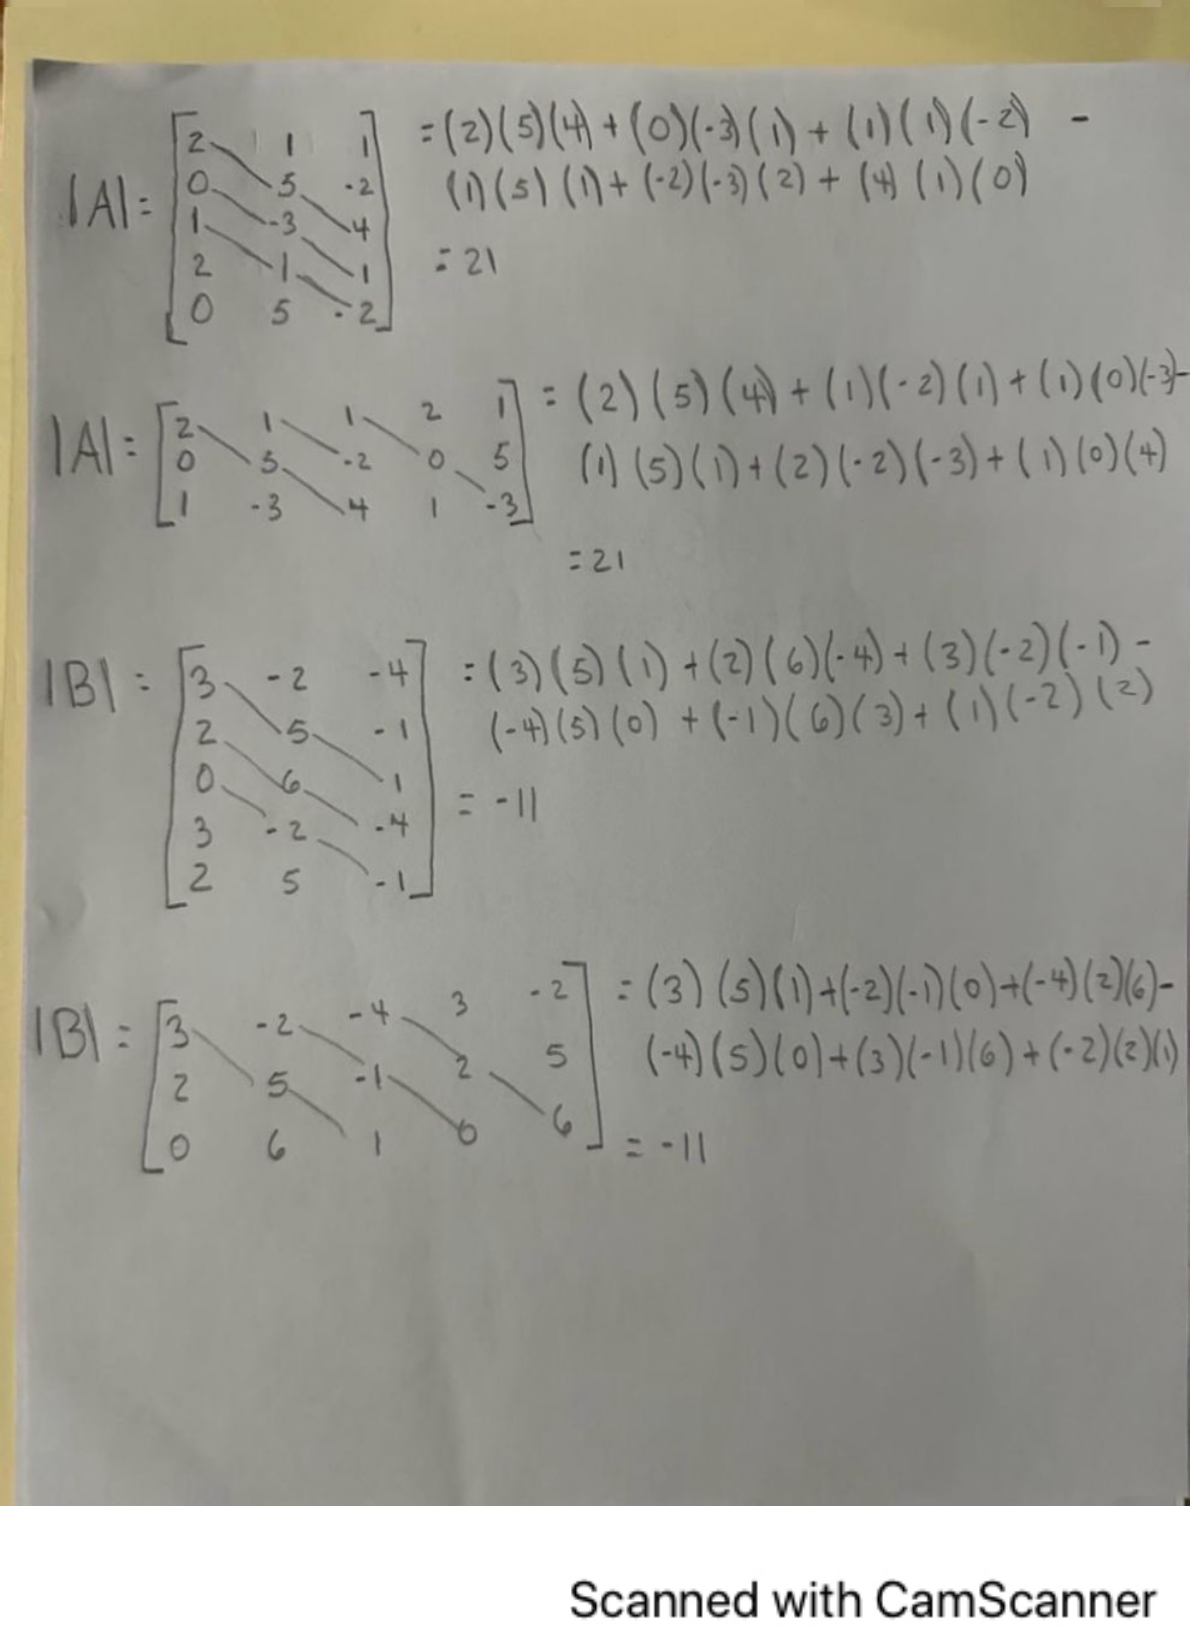 |A| = [2 1 1] = (2)(5)(4) + (0)(-3)(1) + (1)(1)(-2) -
0 5 -2 (1)(5)(1) + (-2)(-3)(2) + (4)(1)(0)
1 -3 4
2 1 1 = 21
0 5 -2
|A| = [2 1 1 2 1] = (2)(5)(4) + (1)(-2)(1) + (1)(0)(-3) -
0 5 -2 0 5 (1)(5)(1) + (2)(-2)(-3) + (1)(0)(4)
1 -3 4 1 -3
= 21
|B| = [3 -2 -4] = (3)(5)(1) + (2)(6)(-4) + (3)(-2)(-1) -
2 5 -1 (-4)(5)(0) + (-1)(6)(3) + (1)(-2)(2)
0 6 1 = -11
3 -2 -4
2 5 -1
|B| = [3 -2 -4 3 -2] = (3)(5)(1) + (-2)(-1)(0) + (-4)(2)(6) -
2 5 -1 2 5 (-4)(5)(0) + (3)(-1)(6) + (-2)(2)(1)
0 6 1 0 6 = -11
Scanned with CamScanner